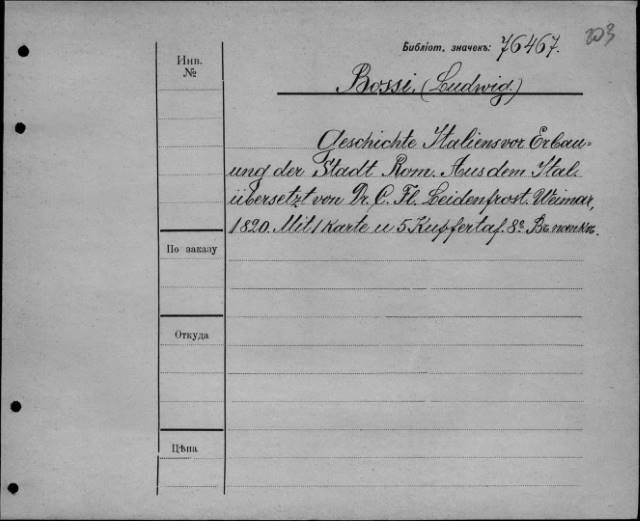 203
Библіот. значекъ: 76467.
Инв.
№
Bossi, (Ludwig)
Geschichte Italiens vor Erbau-
ung der Stadt Rom. Aus dem Ital.
übersetzt von Dr. C. Fl. Leidenfrost. Weimar,
1820. Mit 1 Karte u 5 Kupfertaf. 8º.
По заказу
Откуда
Цѣна